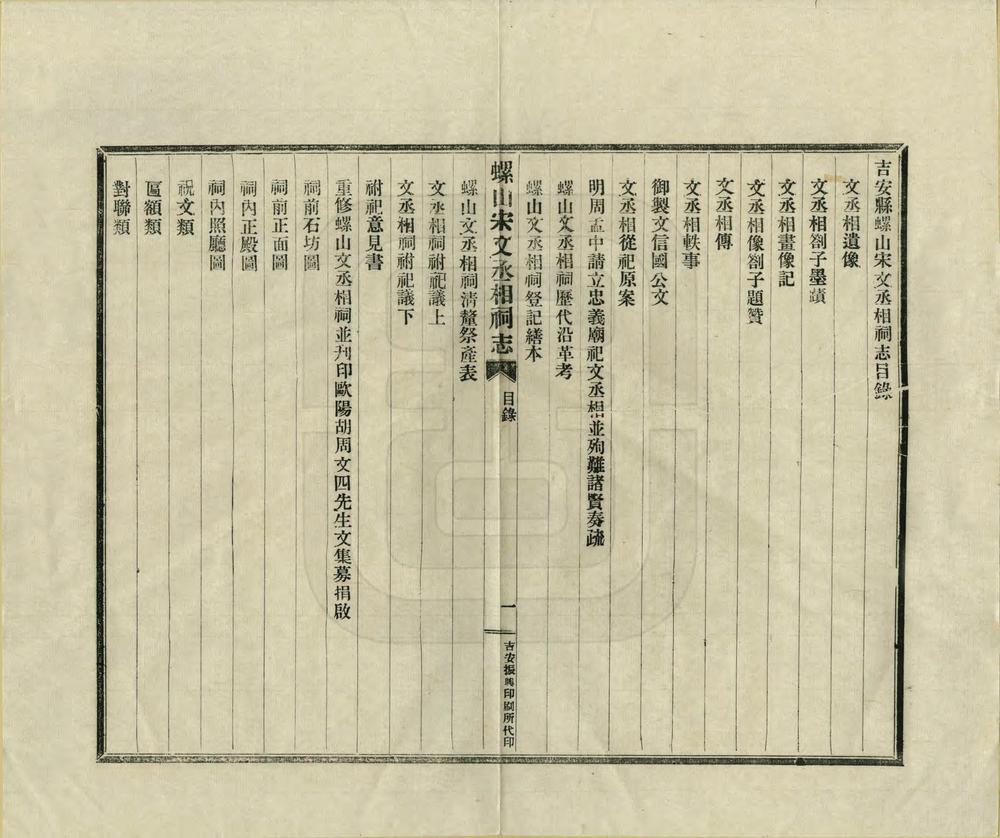 吉安縣螺山宋文丞相祠志目錄
文丞相遺像
文丞相劄子墨蹟
文丞相畫像記
文丞相像劄子題贊
文丞相傳
文丞相軼事
御製文信國公文
文丞相從祀原案
明周孟中請立忠義廟祀文丞相並殉難諸賢奏疏
螺山文丞相祠歷代沿革考
螺山文丞相祠登記繕本
螺山宋文丞相祠志 目錄 一 吉安振興印刷所代印
螺山文丞相祠清釐祭產表
文丞相祠祔祀議上
文丞相祠祔祀議下
祔祀意見書
重修螺山文丞相祠並刊印歐陽胡周文四先生文集募捐啟
祠前石坊圖
祠前正面圖
祠內正殿圖
祠內照廳圖
祝文類
匾額類
對聯類